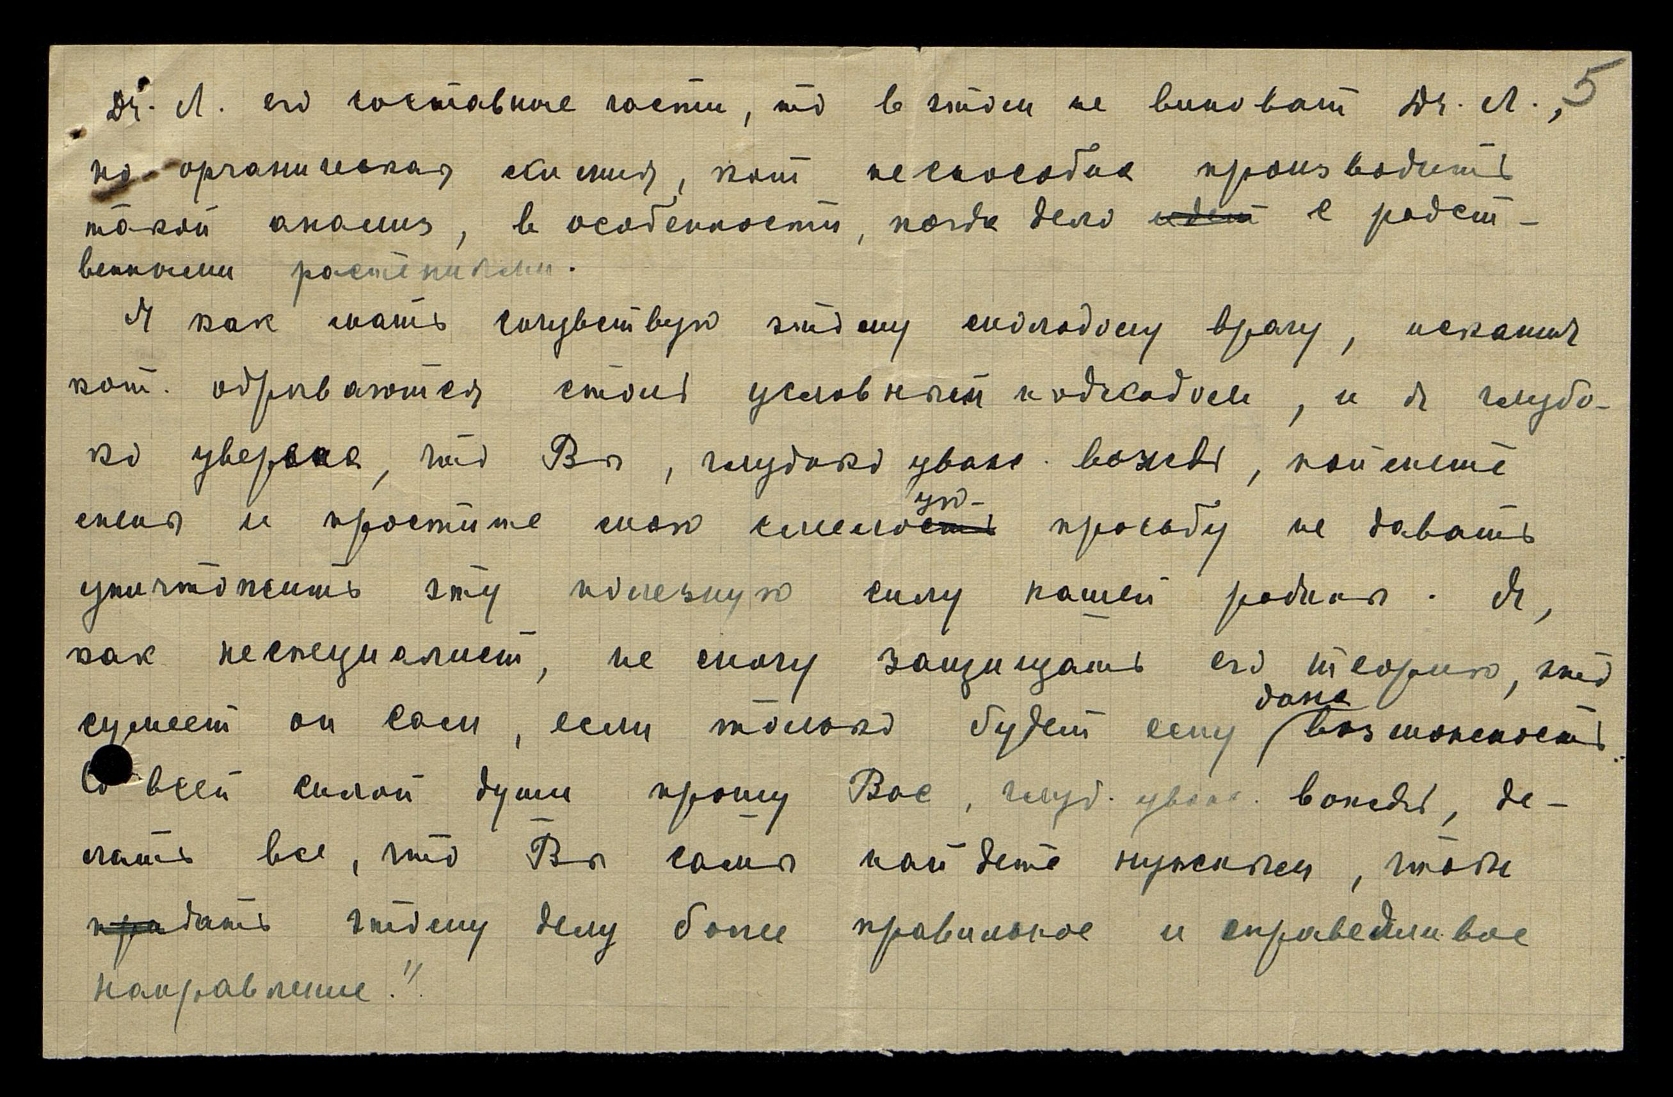 5
Dr. Л. его составные части, то в этом не виноват Dr. Л.,
но органическая химия, кот неспособна производить
такой анализ, в особенности, когда дело идет с родст-
венными растениями.
Я как мать сочувствую этому молодому врачу, искания
кот. обрываются столь условным подходом, и я глубо-
ко уверена, что Вы, глубоко уваж. вождь, поймете
меня и простите мою смелость ую- просьбу не давать
уничтожить эту полезную силу нашей родины. Я,
как неспециалист, не смогу защищать его теорию, это
сумеет он сам, если только будет ему дана возможность.
Со всей силой души прошу Вас, глуб. уваж. вождь, де-
лать все, что Вы сами найдете нужным, чтобы
придать этому делу более правильное и справедливое
направление."